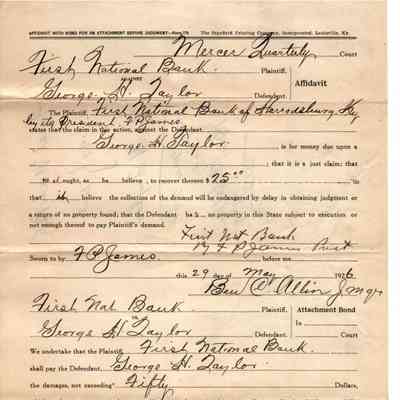 AFFIDAVIT WITH BOND FOR AN ATTACHMENT BEFORE JUDGMENT—Form 178 The Standard Printing Company, Incorporated, Louisville, Ky.
Mercer Quarterly Court
First National Bank. Plaintiff,
against
George H. Taylor Defendant.
Affidavit
The Plaintiff, First National Bank of Harrodsburg Ky
by its President, F P James
states that the claim in this action, against the Defendant
George H. Taylor is for money due upon a
; that it is a just claim; that
he ought, as he believe, to recover thereon $ 25.00
that it believe the collection of the demand will be endangered by delay in obtaining judgment or
a return of no property found; that the Defendant has no property in this State subject to execution or
not enough thereof to pay Plaintiff's demand.
First Nat Bank
By F P James Prest
Sworn to by F P James. before me
this 29 day of May 1926
First Nat Bank Plaintiff,
vs.
George H Taylor Defendant.
Attachment Bond
In
Court
We undertake that the Plaintiff, First National Bank.
shall pay the Defendant, George H. Taylor.
the damages, not exceeding Fifty Dollars,